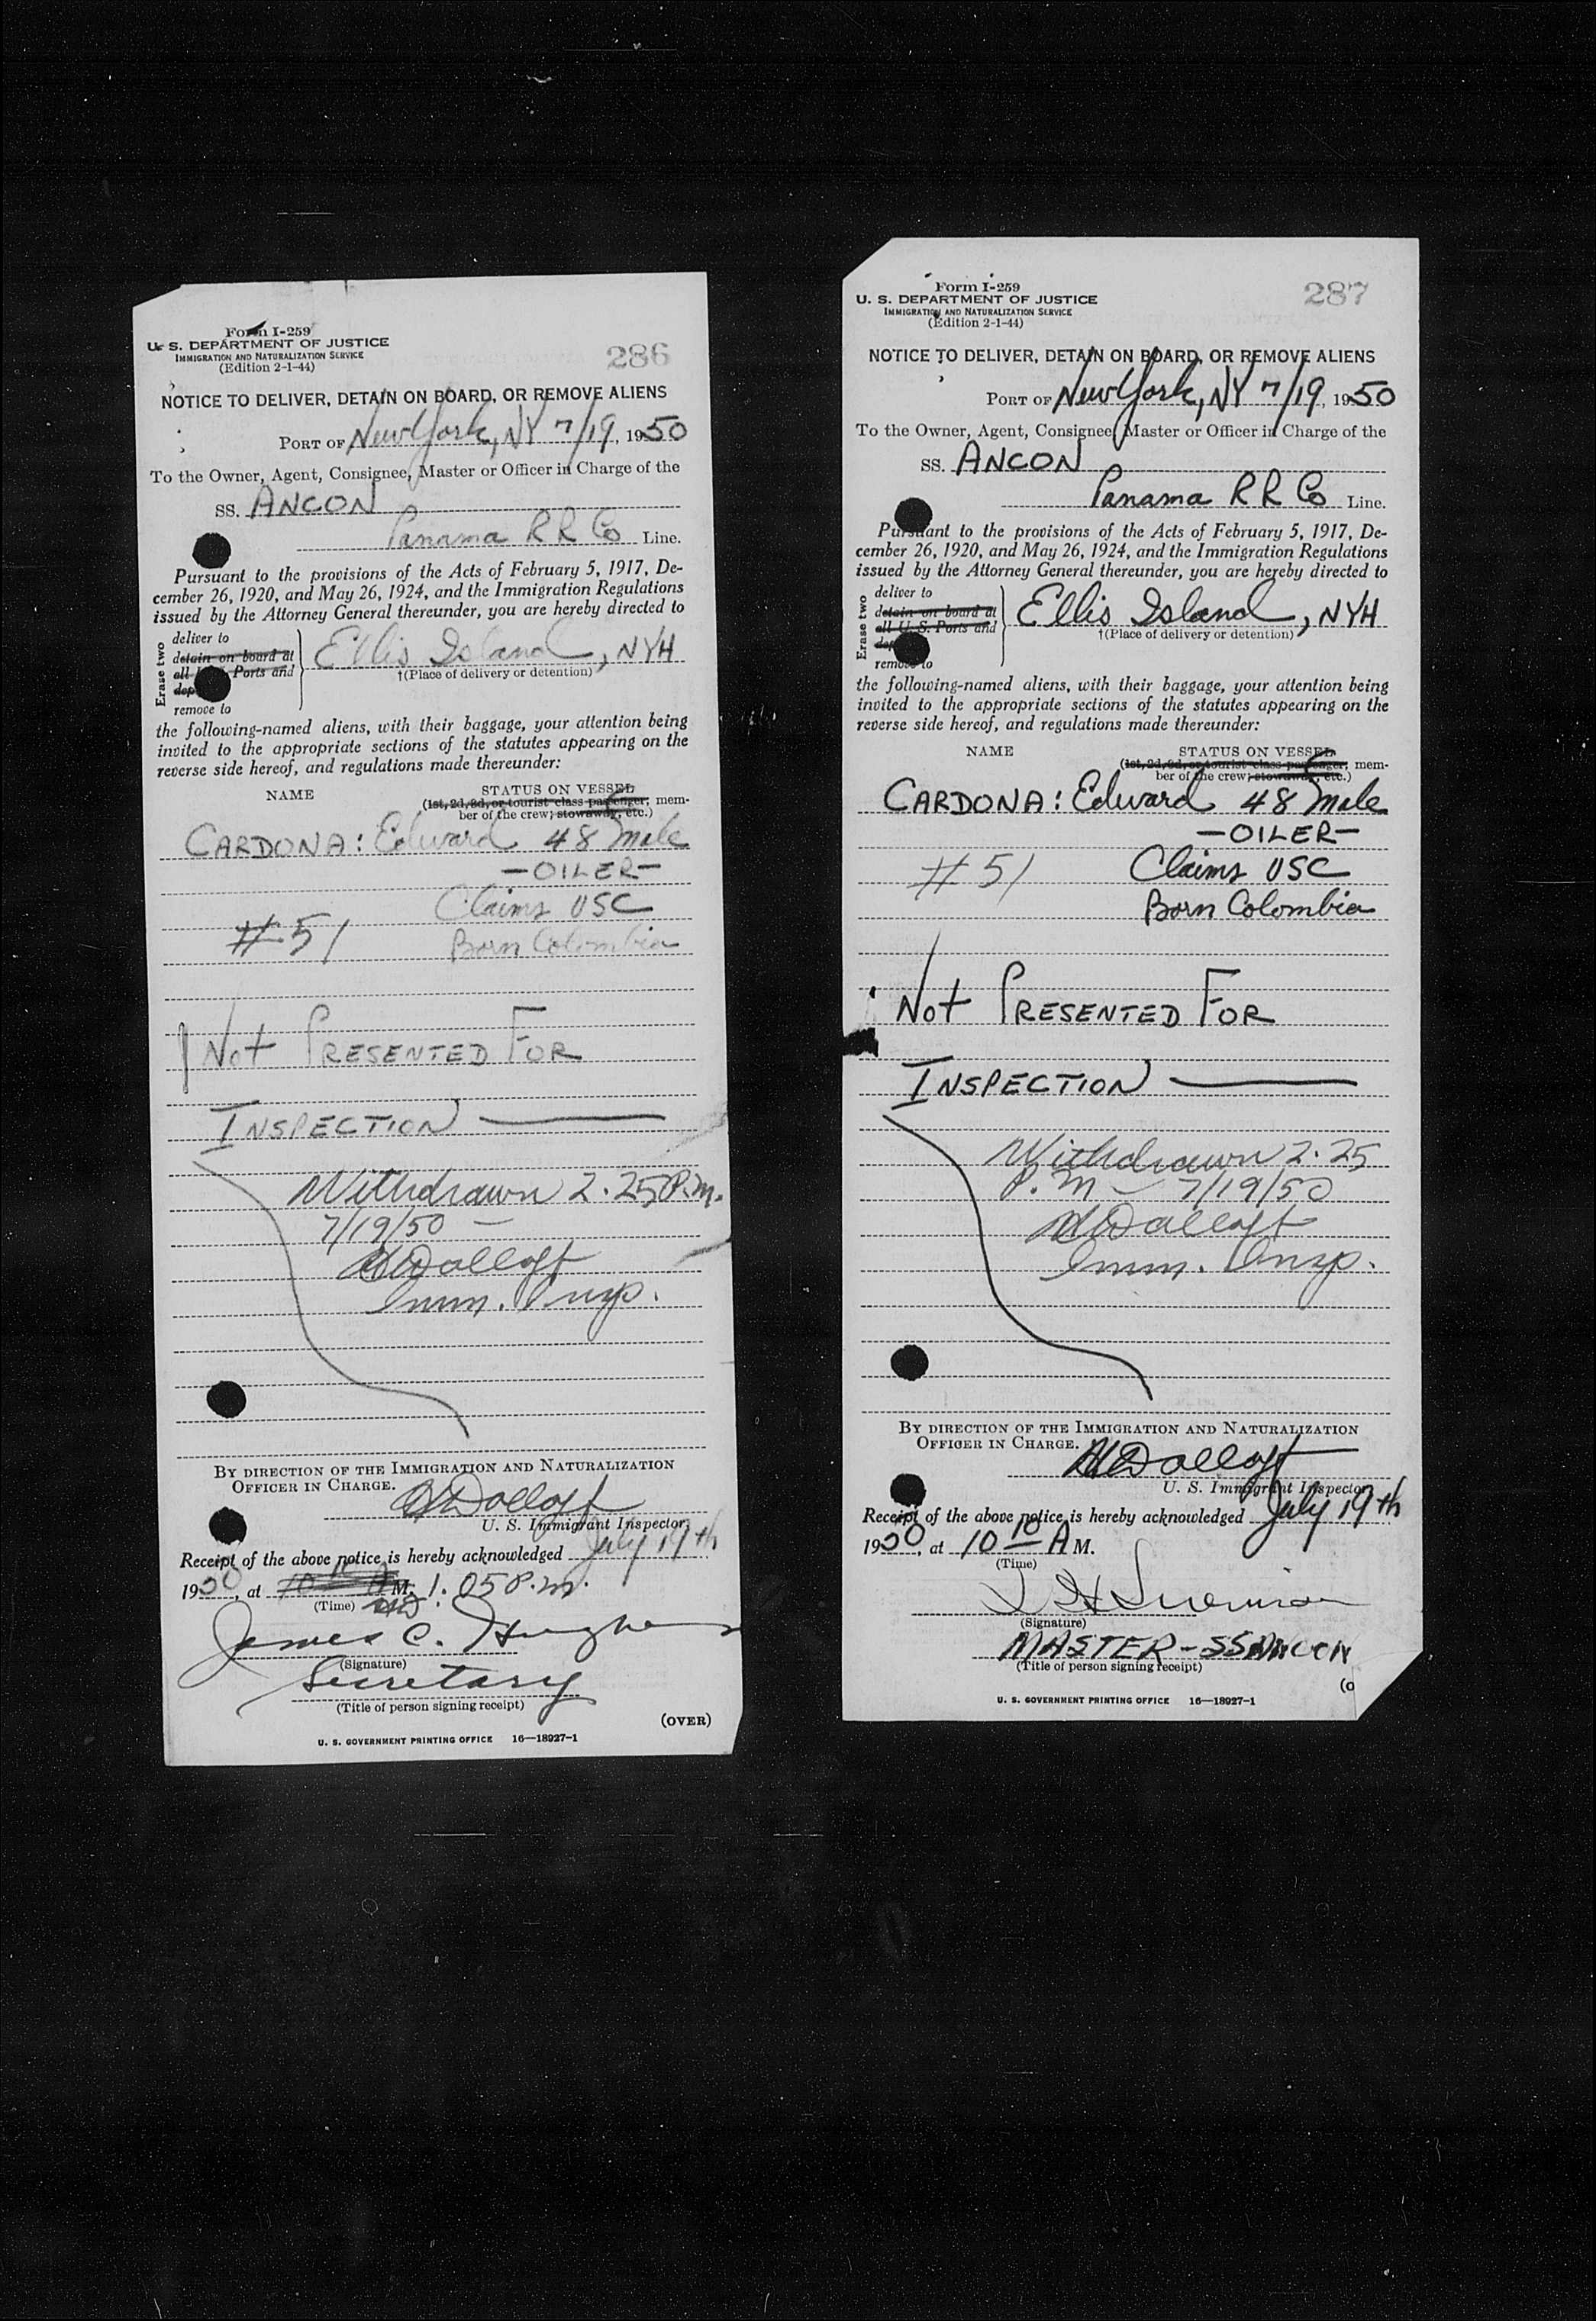 Form I-259
U. S. DEPARTMENT OF JUSTICE
IMMIGRATION AND NATURALIZATION SERVICE
(Edition 2-1-44)
286
NOTICE TO DELIVER, DETAIN ON BOARD, OR REMOVE ALIENS
PORT OF New York, NY 7/19, 1950
To the Owner, Agent, Consignee, Master or Officer in Charge of the
SS. ANCON
Panama R R Co Line.
Pursuant to the provisions of the Acts of February 5, 1917, De-
cember 26, 1920, and May 26, 1924, and the Immigration Regulations
issued by the Attorney General thereunder, you are hereby directed to
Erase two
deliver to
detain on board at
all Ports and
dep
remove to
Ellis Island, NYH
†(Place of delivery or detention)
the following-named aliens, with their baggage, your attention being
invited to the appropriate sections of the statutes appearing on the
reverse side hereof, and regulations made thereunder:
NAME
STATUS ON VESSEL
(1st, 2d, 3d, or tourist class passenger; mem-
ber of the crew; stowaway, etc.)
CARDONA: Edward 48 Male
—OILER—
Claims USC
#51
Born Colombia
Not PRESENTED FOR
INSPECTION
Withdrawn 2.25 P.M.
7/19/50 —
Imm. Insp.
BY DIRECTION OF THE IMMIGRATION AND NATURALIZATION
OFFICER IN CHARGE.
U. S. Immigrant Inspector
Receipt of the above notice is hereby acknowledged July 19th
1950, at 10 10 A M. 1:05 P.M.
(Time)
James C. Hughes
(Signature)
Secretary
(Title of person signing receipt)
(OVER)
U. S. GOVERNMENT PRINTING OFFICE 16—18927-1
Form I-259
U. S. DEPARTMENT OF JUSTICE
IMMIGRATION AND NATURALIZATION SERVICE
(Edition 2-1-44)
287
NOTICE TO DELIVER, DETAIN ON BOARD, OR REMOVE ALIENS
PORT OF New York, NY 7/19, 1950
To the Owner, Agent, Consignee, Master or Officer in Charge of the
SS. ANCON
Panama R R Co Line.
Pursuant to the provisions of the Acts of February 5, 1917, De-
cember 26, 1920, and May 26, 1924, and the Immigration Regulations
issued by the Attorney General thereunder, you are hereby directed to
Erase two
deliver to
detain on board at
all U. S. Ports and
dep
remove to
Ellis Island, NYH
†(Place of delivery or detention)
the following-named aliens, with their baggage, your attention being
invited to the appropriate sections of the statutes appearing on the
reverse side hereof, and regulations made thereunder:
NAME
STATUS ON VESSEL
(1st, 2d, 3d, or tourist class passenger; mem-
ber of the crew; stowaway, etc.)
CARDONA: Edward 48 Male
—OILER—
#51 Claims USC
Born Colombia
Not PRESENTED FOR
INSPECTION
Withdrawn 2.25
P.M — 7/19/50
Imm. Insp.
BY DIRECTION OF THE IMMIGRATION AND NATURALIZATION
OFFICER IN CHARGE.
U. S. Immigrant Inspector
Receipt of the above notice is hereby acknowledged July 19th
1950, at 10 10 A M.
(Time)
(Signature)
MASTER - SS ANCON
(Title of person signing receipt)
(O
U. S. GOVERNMENT PRINTING OFFICE 16—18927-1